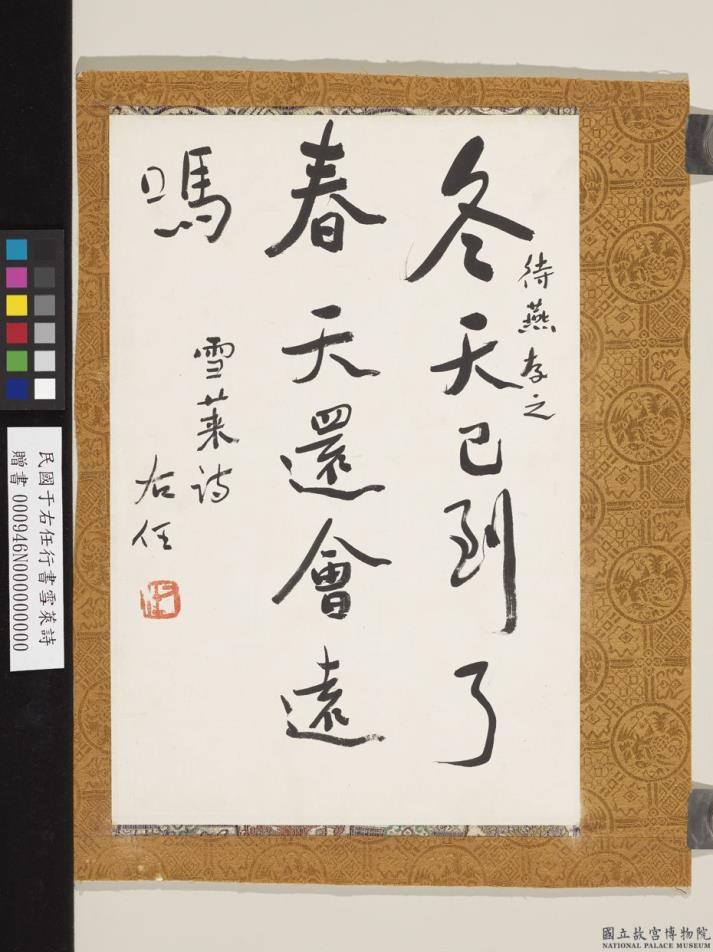 待燕存之
冬天已到了
春天還會遠
嗎
雪萊詩
右任
民國于右任行書雪萊詩
贈書 000946N000000000
國立故宮博物院
NATIONAL PALACE MUSEUM